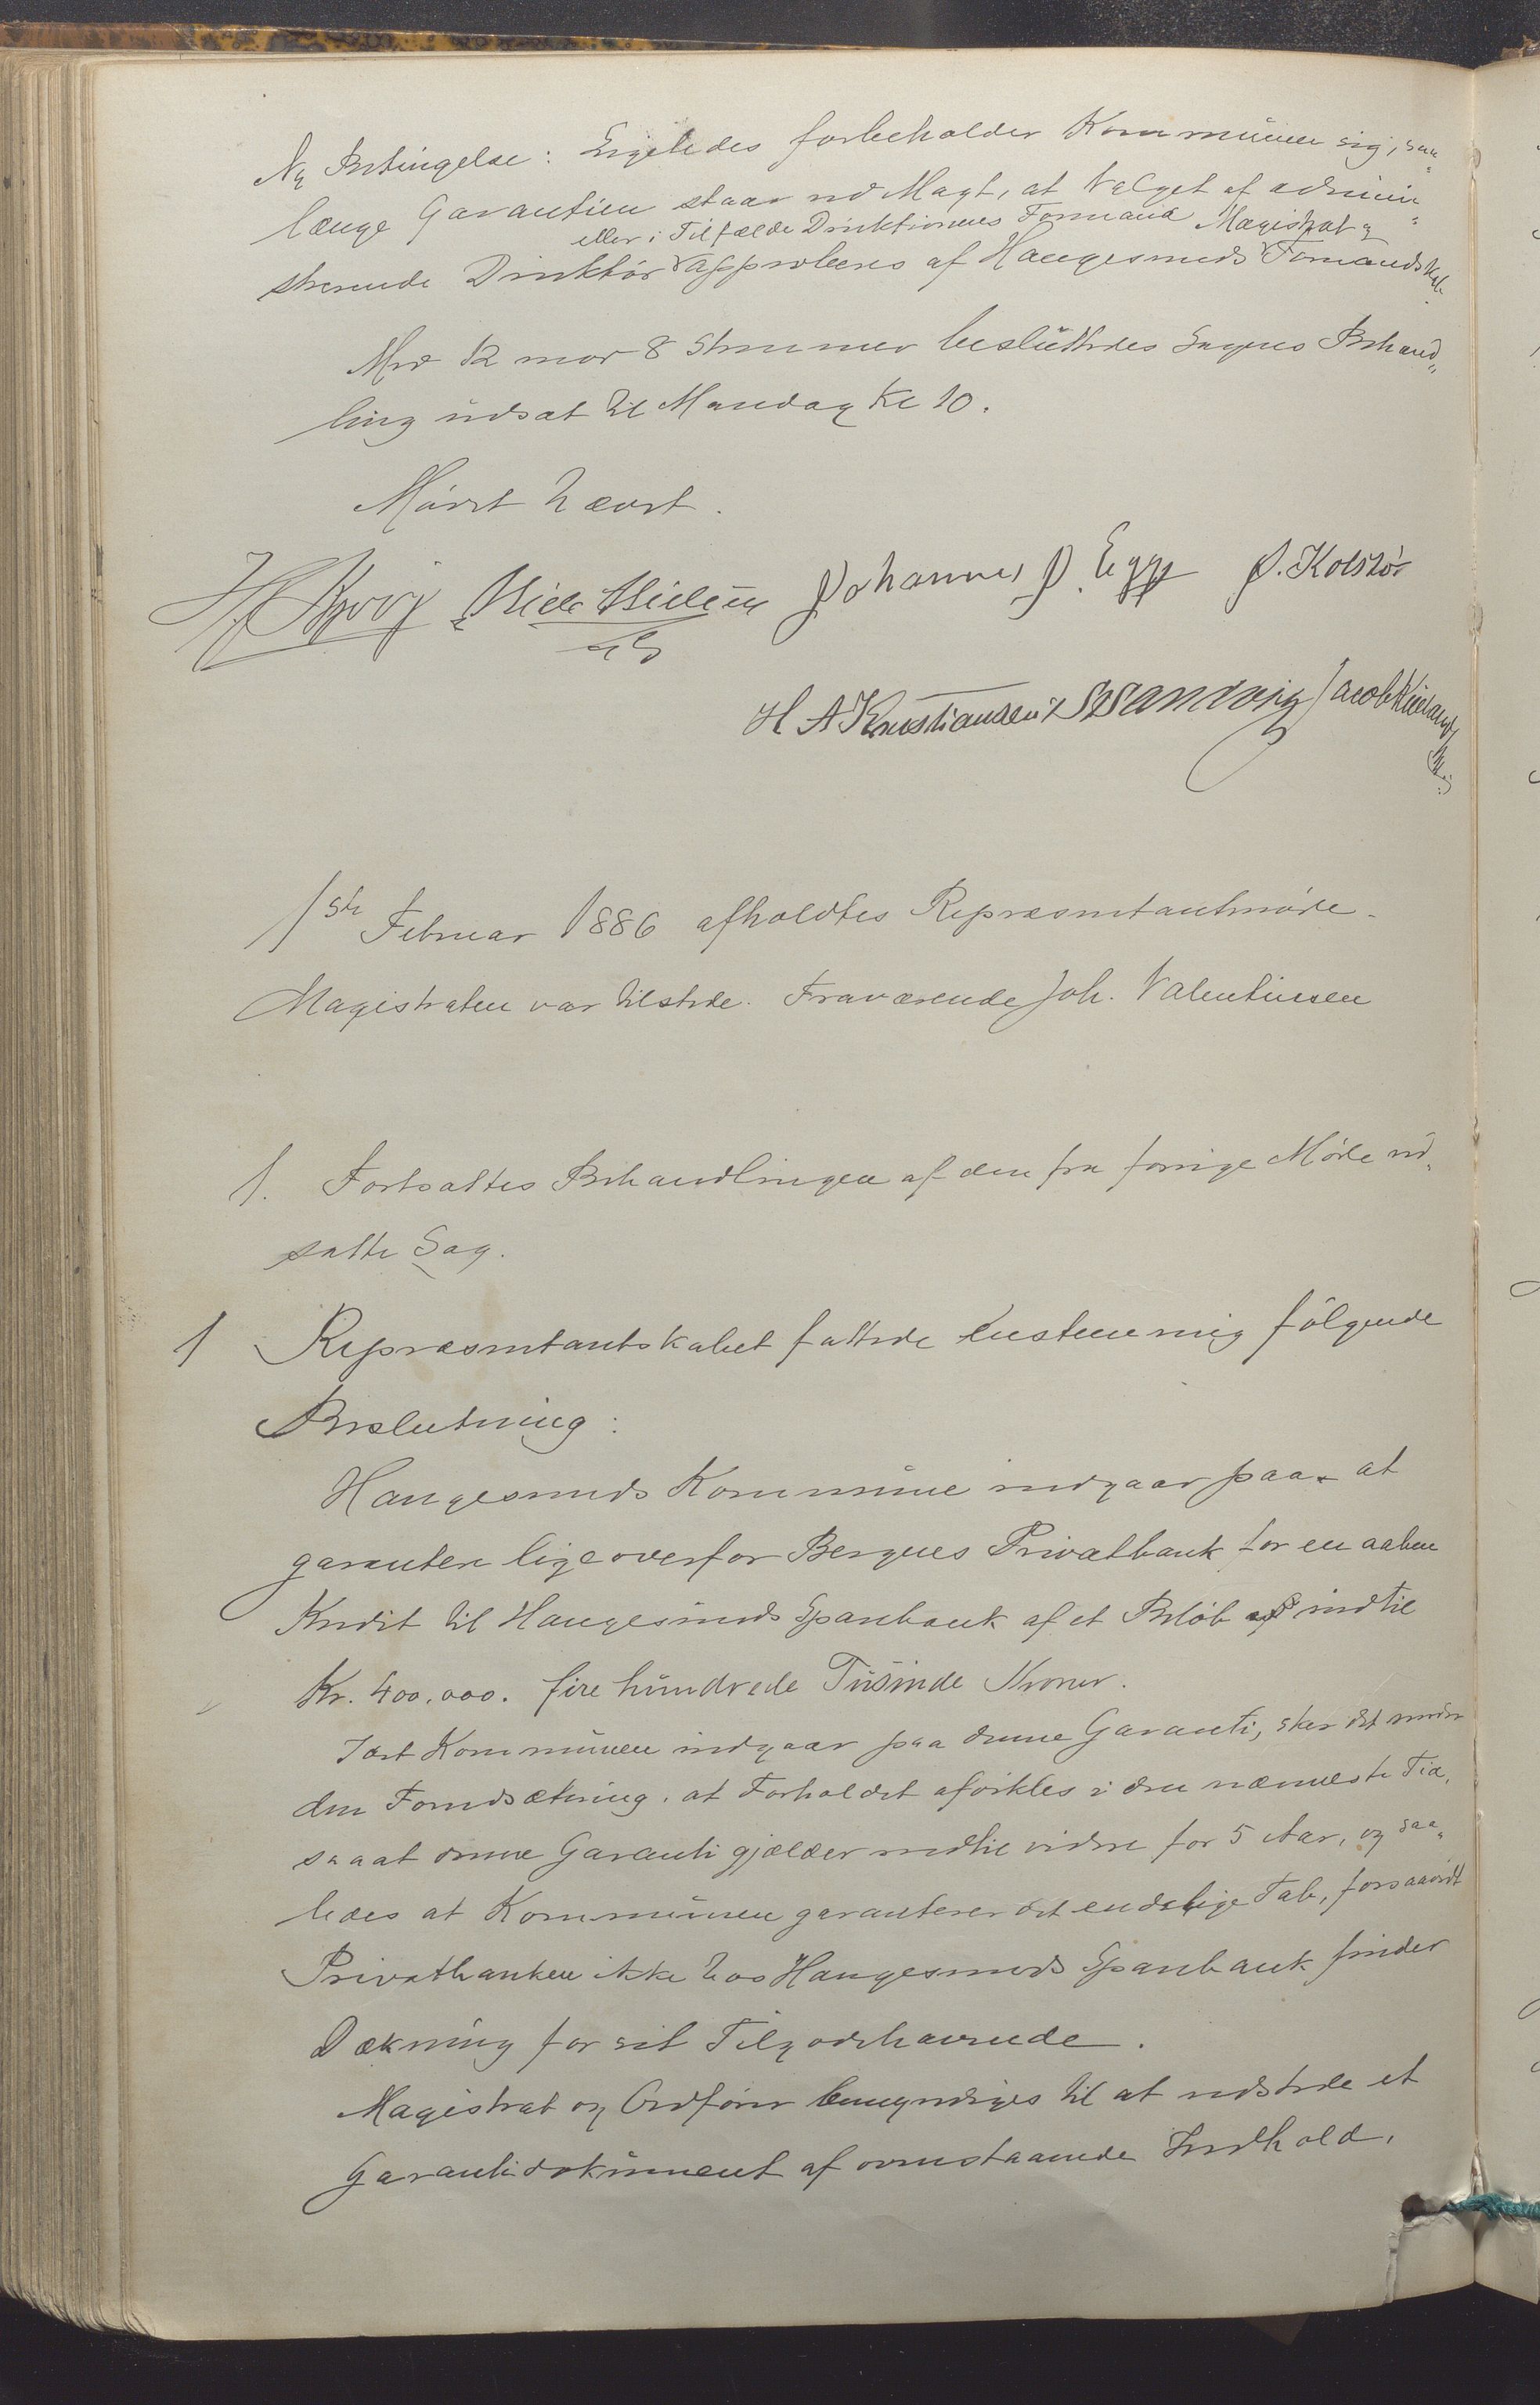 Ny Betingelse: Ligeledes forbeholder Kommunen sig, saa„
længe Garantien staar ved Magt, at Valget af admini„
eller i Tilfælde Direktionens Formand Magistrat og
strerende Direktör approberes af Haugesunds Formandskab.
Med 12 mod 8 Stemmer besluttedes Sagens Behand„
ling udsat til Mandag Kl 10.
Mödet hævet.
Johannes J. Egge J. Kolstö
H A Kristiansen S S Sandvig Jacob Kielland
1ste Februar 1886 afholdtes Repræsentantmöde.
Magistraten var tilstede. Fraværende Joh. Valentinsen
1. Fortsattes Behandlingen af den fra forrige Möde ud„
satte Sag.
1 Repræsentantskabet fattede enstemmig fölgende
Beslutning:
Haugesunds Kommune indgaar paa at
garantere ligeoverfor Bergens Privatbank for en aaben
Kredit til Haugesunds Sparebank af et Belöb indtil
Kr. 400,000. fire hundrede Tusinde Kroner.
Idet Kommunen indgaar paa denne Garanti, sker det under
den Forudsætning, at Forholdet afvikles i den nærmeste Tid,
saaat denne Garanti gjælder indtil videre for 5 Aar, og saa„
ledes at Kommunen garanterer det endelige Tab, forsaavidt
Privatbanken ikke hos Haugesunds Sparebank finder
Dækning for sit Tilgodehavende.
Magistrat og Ordförer bemyndiges til at udstede et
Garantidokument af ovenstaaende Indhold.